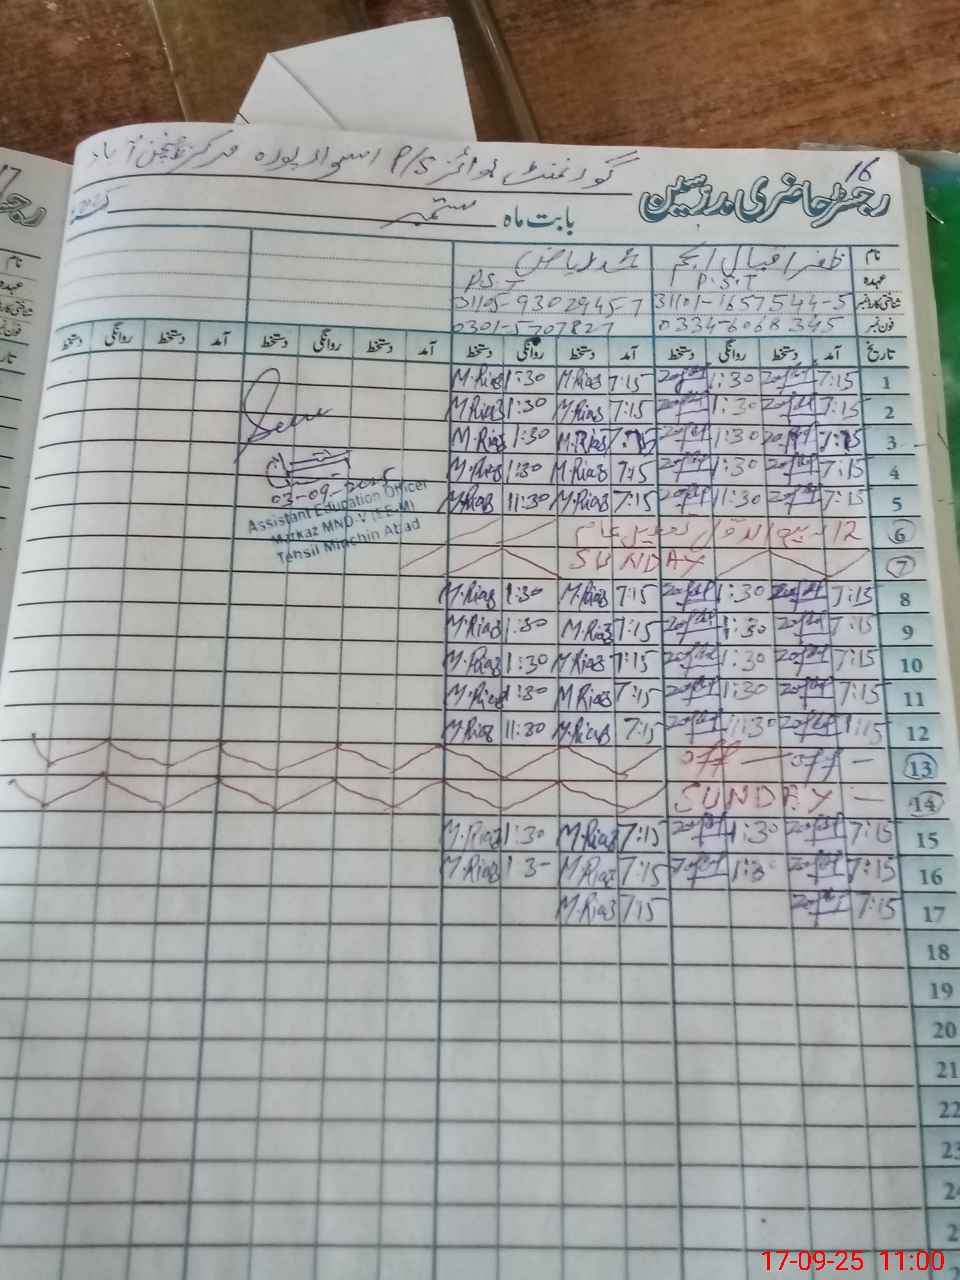 16
گورنمنٹ بوائز P/S اسوار پورہ مرکز منچن آباد
رجسٹر حاضری مدرسین
بابت ماہ ستمبر
نام ظفر اقبال محمد ریاض
عہدہ P.S.T P.S.T
شناختی کارڈ نمبر 31101-1657544-5 31105-9302945-7
فون نمبر 0334-6068345 0301-5707827
تاریخ آمد دستخط روانگی دستخط آمد دستخط روانگی دستخط آمد دستخط روانگی دستخط آمد دستخط روانگی دستخط
1 7:15 1:30 7:15 M.Riaz 1:30 M.Riaz
2 7:15 1:30 7:15 M.Riaz 1:30 M.Riaz
3 7:15 1:30 7:15 M.Riaz 1:30 M.Riaz
4 7:15 1:30 7:15 M.Riaz 1:30 M.Riaz
5 7:15 11:30 7:15 M.Riaz 11:30 M.Riaz
03-09-2025
Assistant Education Officer
Markaz MND-V (EE-M)
Tehsil Minchin Abad
6 12 ربیع الاول تعطیل عام
7 SUNDAY
8 7:15 1:30 7:15 M.Riaz 1:30 M.Riaz
9 7:15 1:30 7:15 M.Riaz 1:30 M.Riaz
10 7:15 1:30 7:15 M.Riaz 1:30 M.Riaz
11 7:15 1:30 7:15 M.Riaz 1:30 M.Riaz
12 7:15 11:30 7:15 M.Riaz 11:30 M.Riaz
13 off — off —
14 SUNDAY —
15 7:15 1:30 7:15 M.Riaz 1:30 M.Riaz
16 7:15 1:3 7:15 M.Riaz 1:3- M.Riaz
17 7:15 7:15 M.Riaz
18
19
20
21
22
23
24
17-09-25 11:00